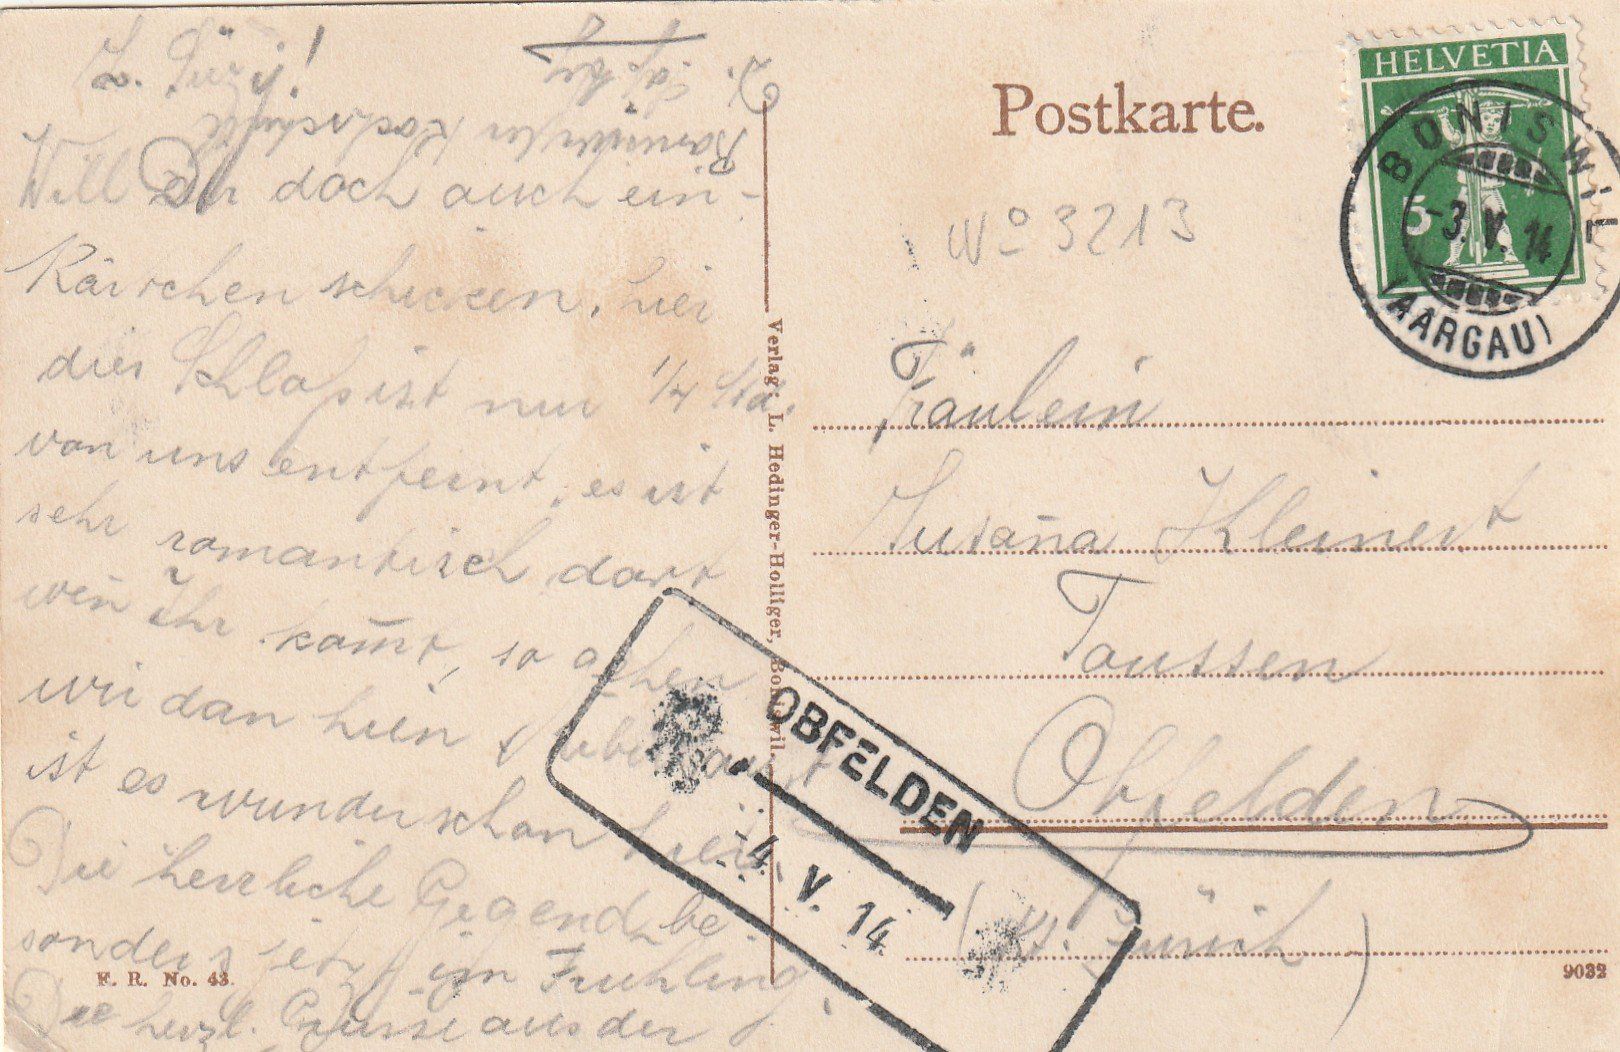 L. Süzi!
Will Dir doch auch ein
Kärtchen schicken, hier
dies Schloß ist nur 1/4 Std.
von uns entfernt, es ist
sehr romantisch dort
wen̄ Ihr kom̄t, so gehen
wir dan hin, überhaupt
ist es wunderschön hier.
Die herrliche Gegend be-
sonders jetzt im Frühling.
Die herzl. Grüsse aus der
Kochschule
Postkarte.
No 3213
HELVETIA
5
BONISWIL
-3.V.14
(AARGAU)
Fräulein
Susan̄a Kleinert
Toussen
Obfelden
(Kt. Zürich)
Verlag: L. Hedinger-Holliger, Boniswil.
OBFELDEN
-4.V.14
F. R. No. 43.
9032